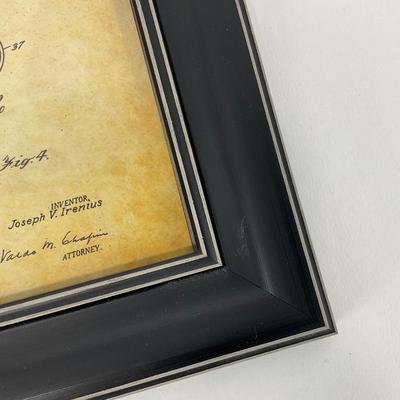 37
Fig. 4.
INVENTOR,
Joseph V. Irenius
Waldo M. Chapin
ATTORNEY.